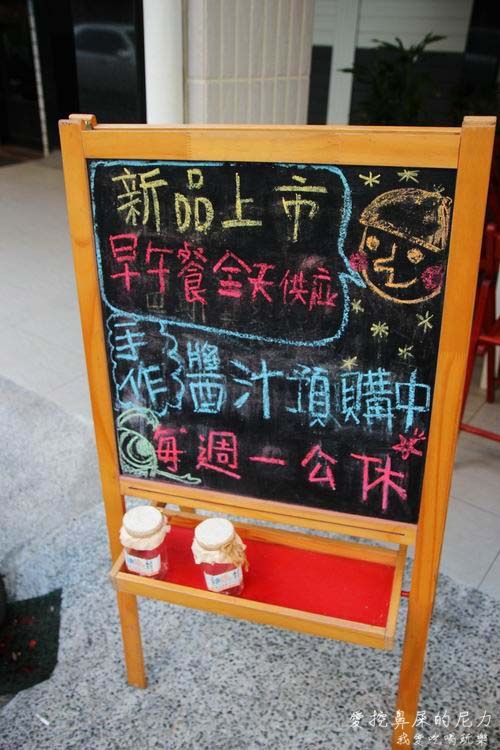 新品上市
早午餐全天供應
手作醬汁預購中
每週一公休
愛挖鼻屎的尼力
我愛吃喝玩樂